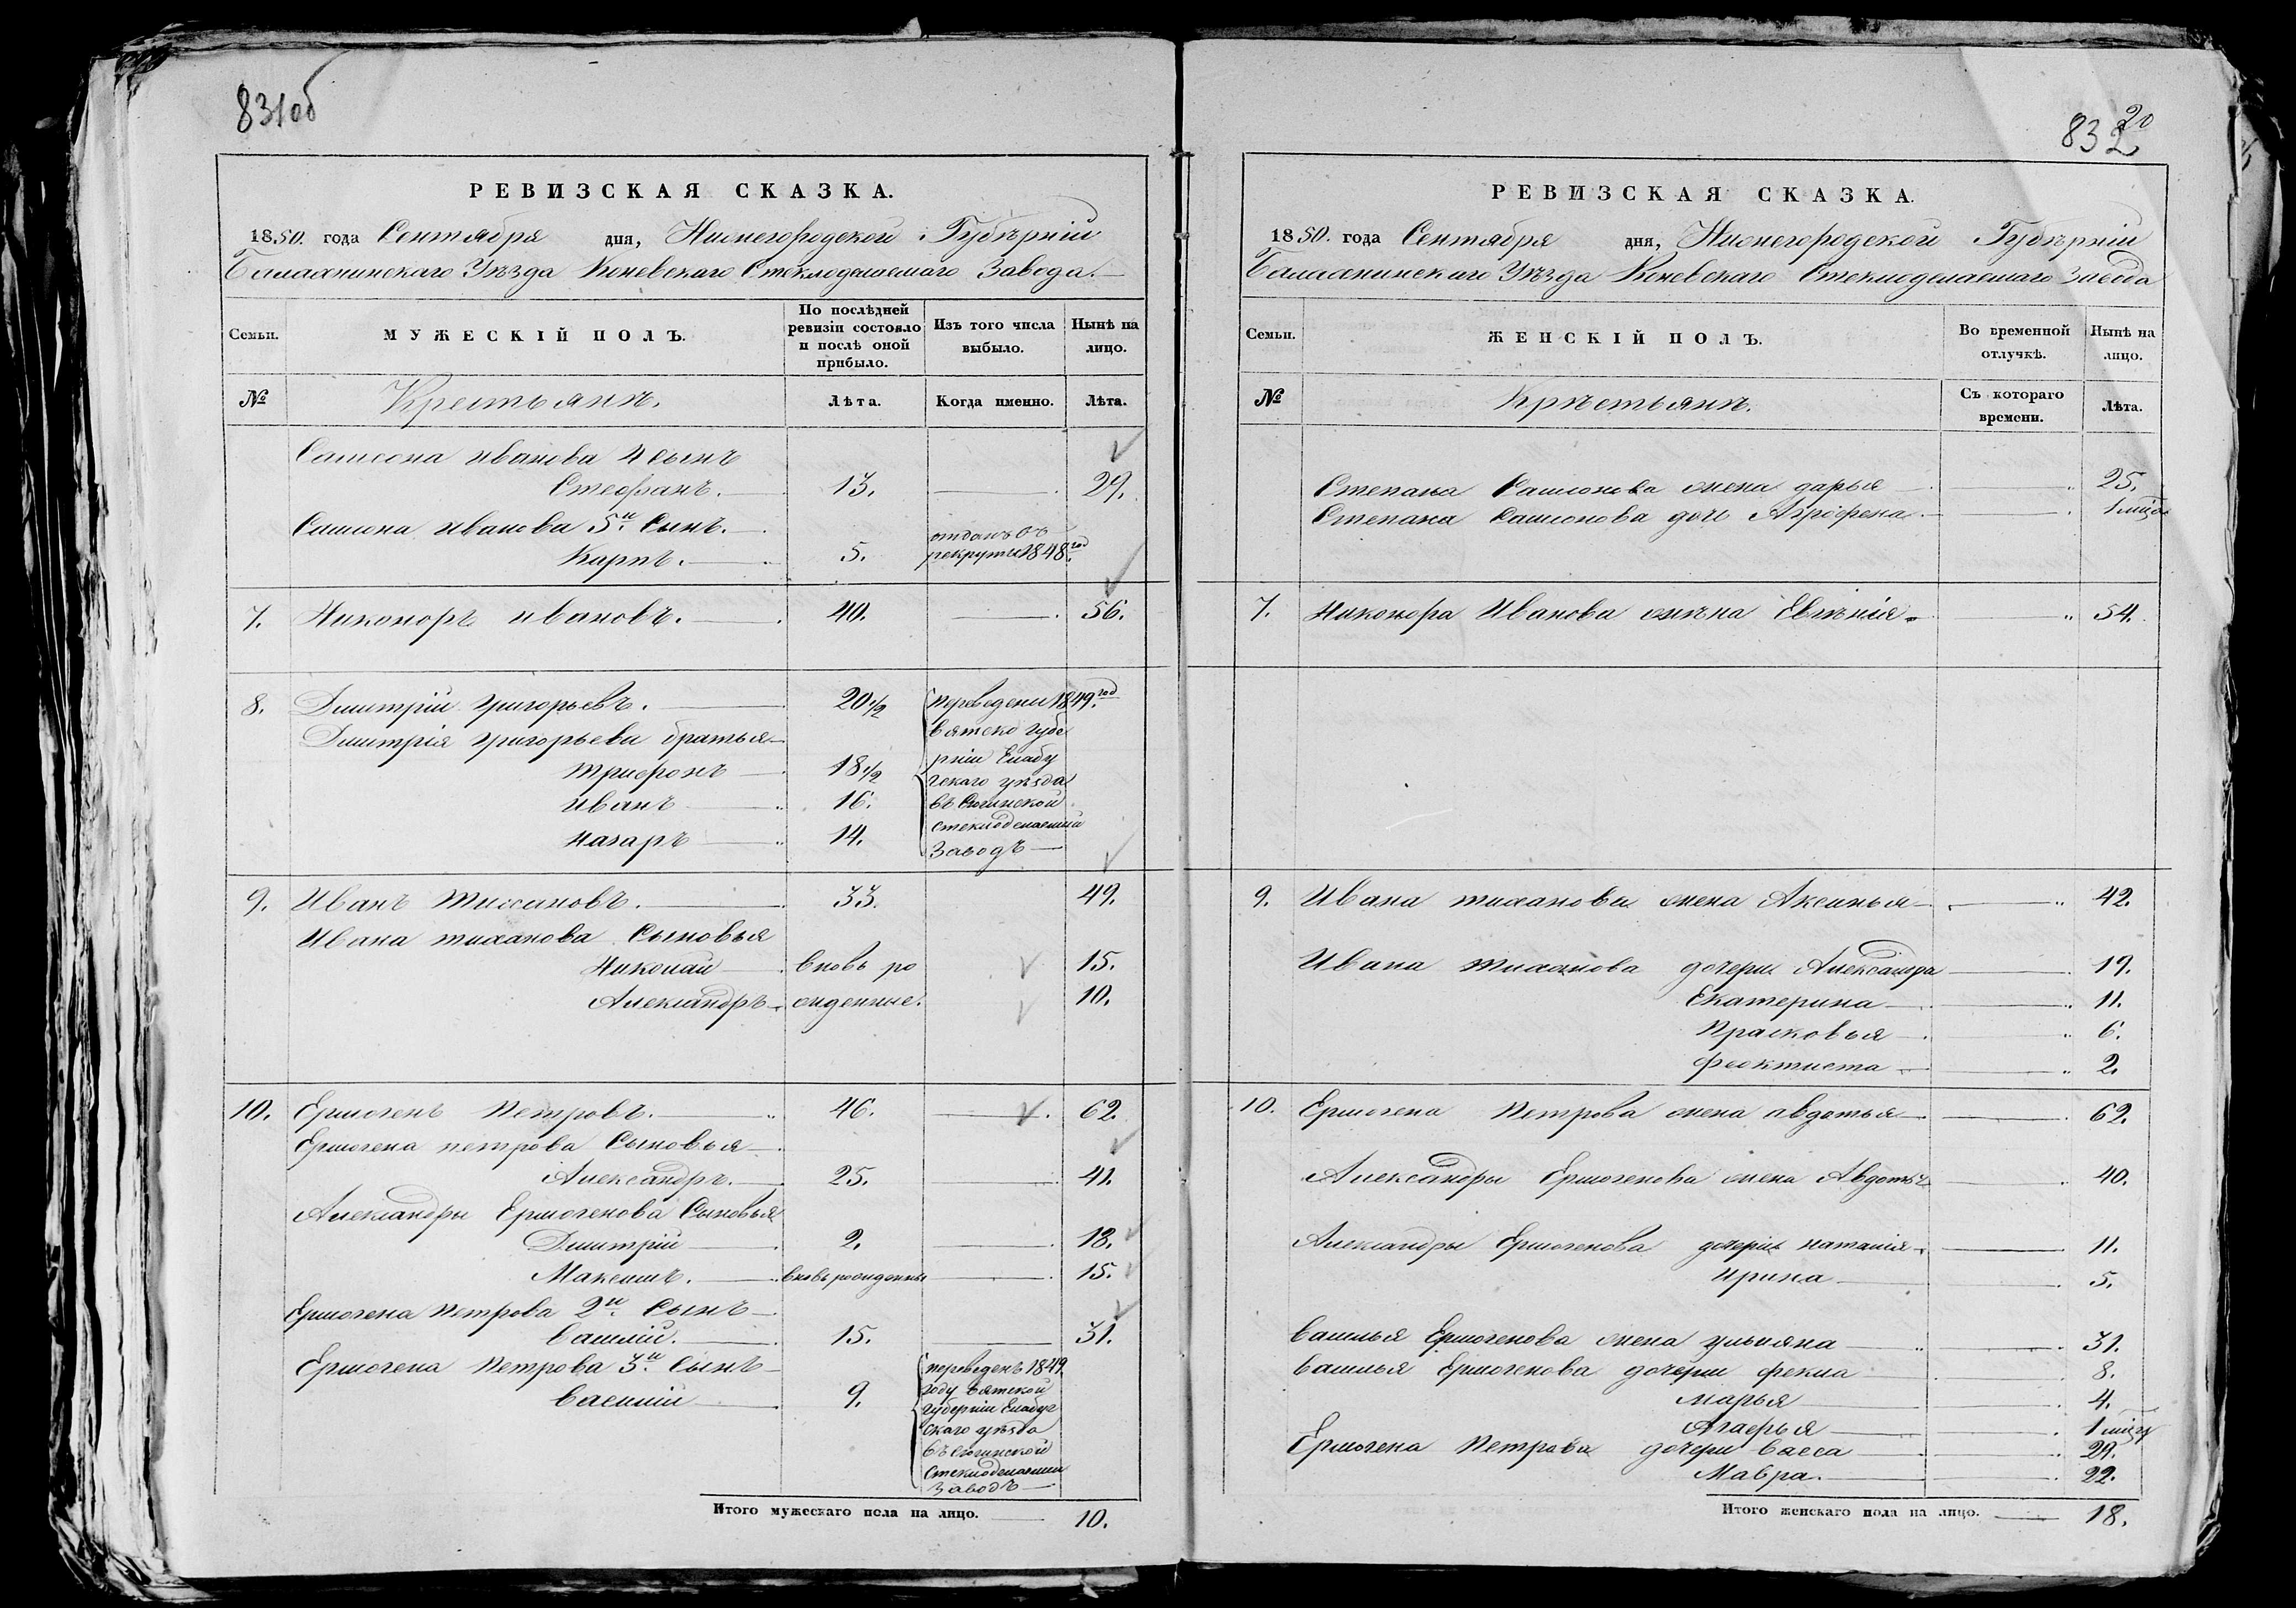 831об
РЕВИЗСКАЯ СКАЗКА.
1850. года Сентября дня, Нижегородской Губѣрніи
Балахнинскаго Уѣзда Коневскаго Стеклодѣлаемаго Завода.
Семьи.
МУЖЕСКІЙ ПОЛЪ.
По послѣдней ревизіи состояло и послѣ оной прибыло.
Изъ того числа выбыло.
Нынѣ на лицо.
№ Крестьянъ. Лѣта. Когда именно. Лѣта.
Самсона иванова 4 сынъ
Стефанъ. 13. 29.
Самсона иванова 5й Сынъ.
Карпъ. 5. отданъ въ рекруты 1848 год
7. Никоноръ ивановъ. 40. 56.
8. Дмитрій григорьевъ. 20 1/2 переведены 1849 год
Дмитрія григорьева братья вятско губе
трифонъ 18 1/2 рніи Елабу
гскаго уѣзда
иванъ 16. въ Сюгинской
назаръ 14. стеклоделаемый
Заводъ
9. Иванъ тихановъ. 33. 49.
Ивана тиханова Сыновья
Николай вновь ро 15.
Александръ жденные. 10.
10. Ермогенъ петровъ. 46. 62.
Ермогена петрова Сыновья
Александръ. 25. 41.
Александры Ермогенова Сыновья
Дмитрій 2. 18.
Максимъ. вновь рожденны 15.
Ермогена петрова 2й Сынъ
василій. 15. 31.
Ермогена петрова 3й Сынъ переведенъ 1849
василій 9. году вятской
губерніи Елабуг
скаго уѣзда
въ Сюгинской
Стеклоделаемы
Заводъ
Итого мужескаго пола на лицо. 10.
20
832
РЕВИЗСКАЯ СКАЗКА.
1850. года Сентября дня, Нижегородской Губѣрніи
Балахнинскаго Уѣзда Коневскаго Стеклоделаемаго Завода
Семьи.
ЖЕНСКІЙ ПОЛЪ.
Во временной отлучкѣ.
Нынѣ на лицо.
№ Крѣстьянъ. Съ котораго времени. Лѣта.
Степана Самсонова жена дарья 25.
Степана Самсонова дочь Агрофена
7. Никонора Иванова жѣна Евгѣнія 54.
9. Ивана тиханова жена Аксинья 42.
Ивана тиханова дочери Александра 19.
Екатерина 11.
Прасковья 6.
феоктиста 2.
10. Ермогена петрова жена авдотья 62.
Александры Ермогенова жена Авдотья 40.
Александры Ермогенова дочери наталія 11.
ирина 5.
василья Ермогенова жена ульяна 31.
василья Ермогенова дочери фекла 8.
марья 4.
Агафья
Ермогена петрова дочери васса 29.
Мавра. 22.
Итого женскаго пола на лицо. 18.